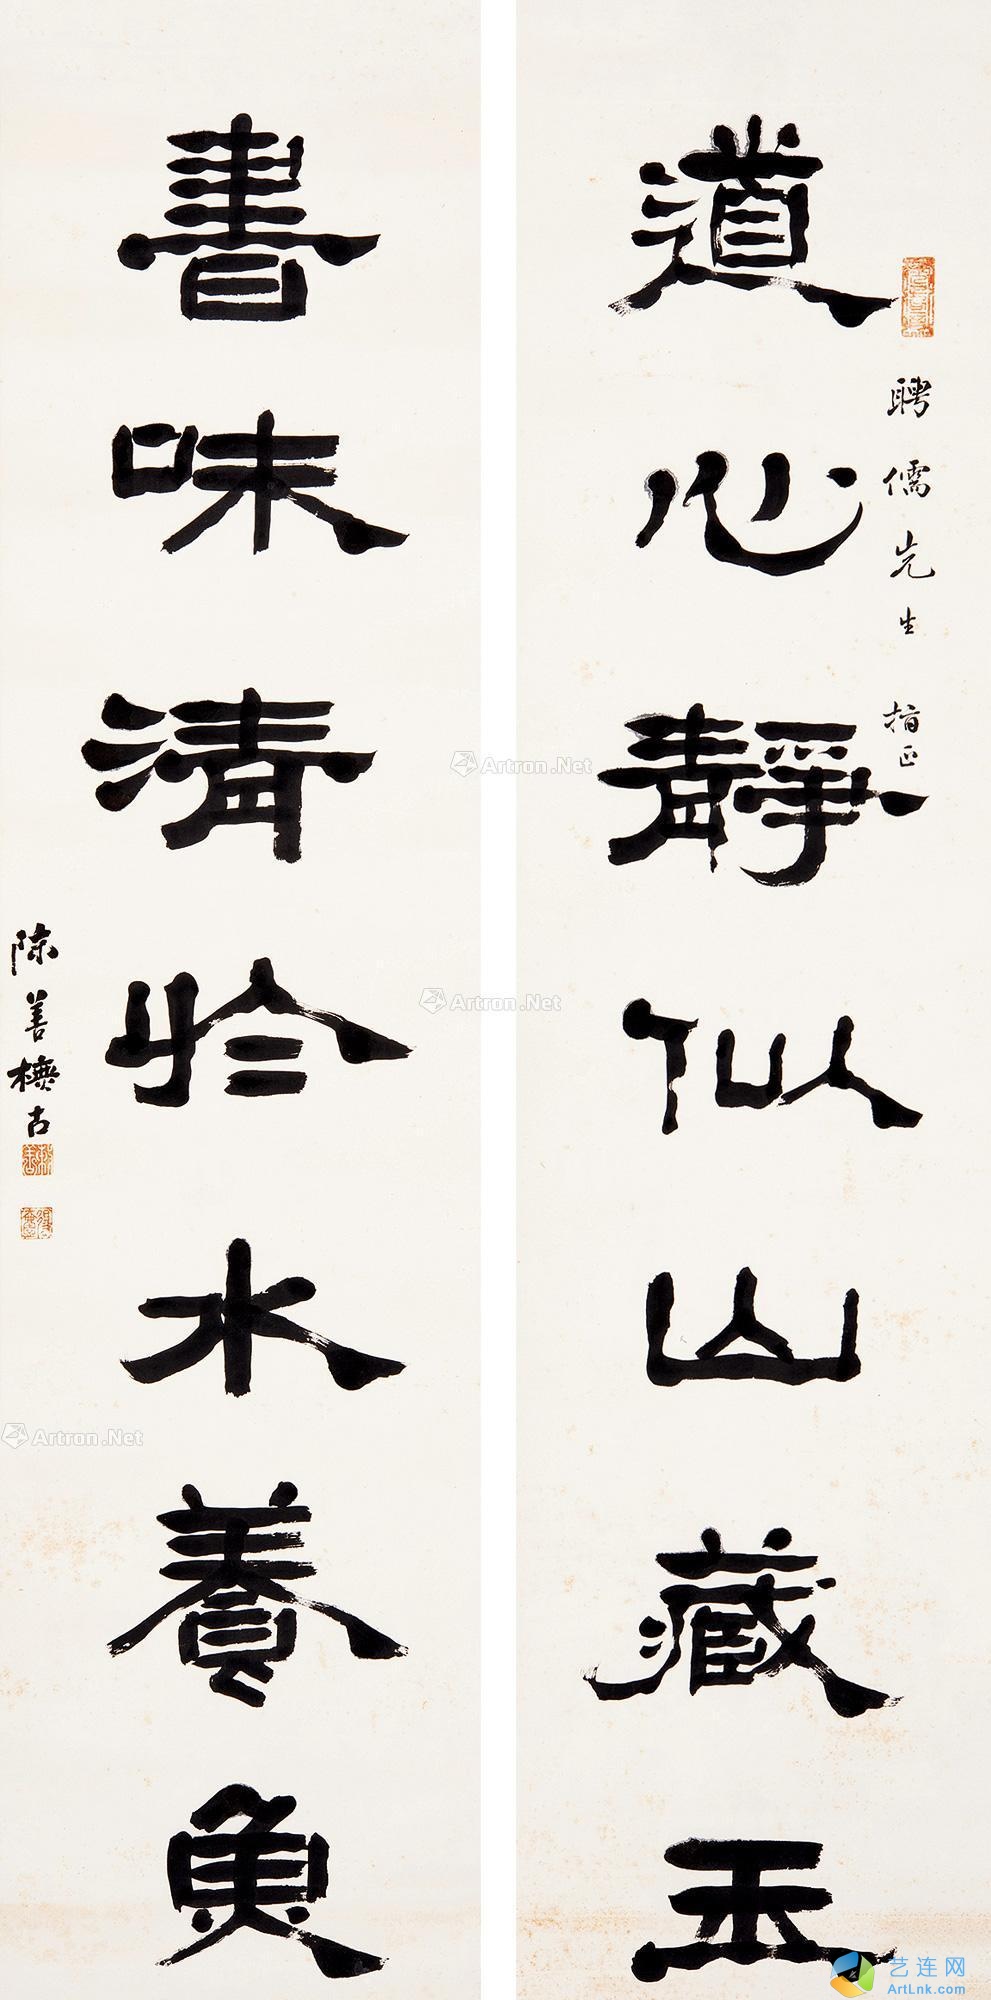 道心靜似山藏玉
聘儒先生 指正
書味清於水養魚
陈善
Artron.Net
Artron.Net
Artron.Net
艺连网
ArtLnk.com